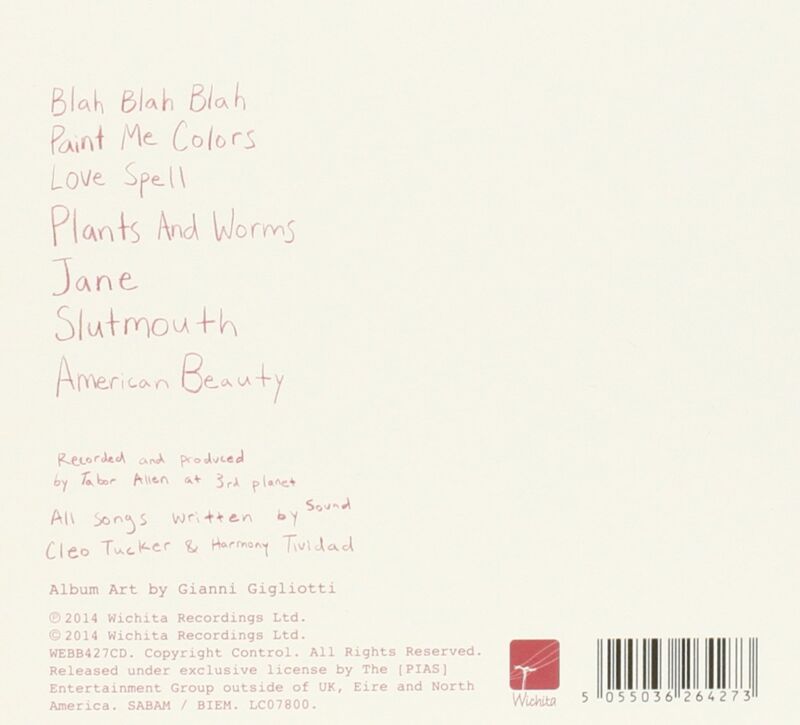 Blah Blah Blah
Paint Me Colors
Love Spell
Plants And Worms
Jane
Slutmouth
American Beauty
Recorded and produced
by Tabor Allen at 3rd planet
Sound
All songs written by
Cleo Tucker & Harmony Tividad
Album Art by Gianni Gigliotti
℗ 2014 Wichita Recordings Ltd.
© 2014 Wichita Recordings Ltd.
WEBB427CD. Copyright Control. All Rights Reserved.
Released under exclusive license by The [PIAS]
Entertainment Group outside of UK, Eire and North
America. SABAM / BIEM. LC07800.
Wichita
5 055036 264273